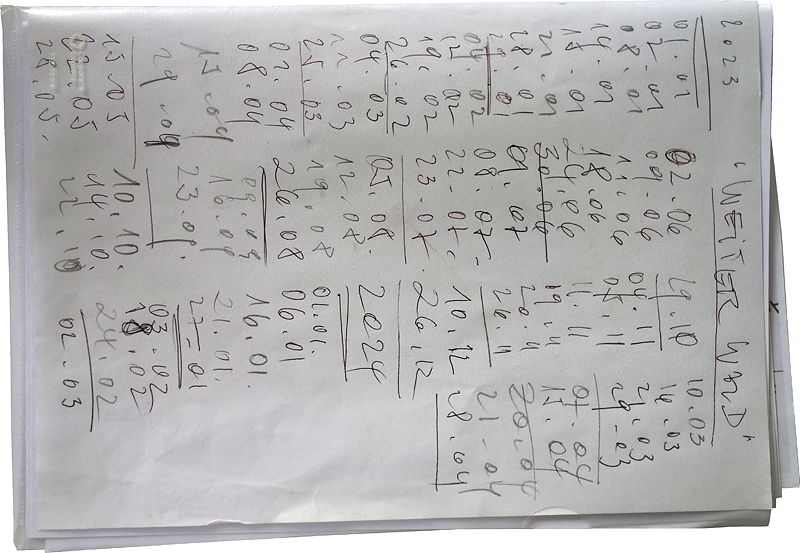 2023 "WEITER
01.01
07.01
08.01
14.01
15.01
21.01
28.01
29.01
04.02
12.02
19.02
26.02
04.03
11.03
25.03
02.04
08.04
15.04
29.04
15.05
22.05
28.05.
02.06
09.06
11.06
18.06
24.06
30.06
01.07
08.07
22.07.
23.07.
05.08.
12.08
19.08
26.08
09.09
16.09
23.09.
10.10.
14.10.
22.10
29.10
04.11
05.11
11.11
19.11
20.11
26.11
10.12
26.12
2024
01.01.
06.01
16.01.
21.01.
27.01
03.02
18.02
24.02
02.03
10.03
16.03
21.03
29.03
07.04
15.04
20.04
21.04
28.04